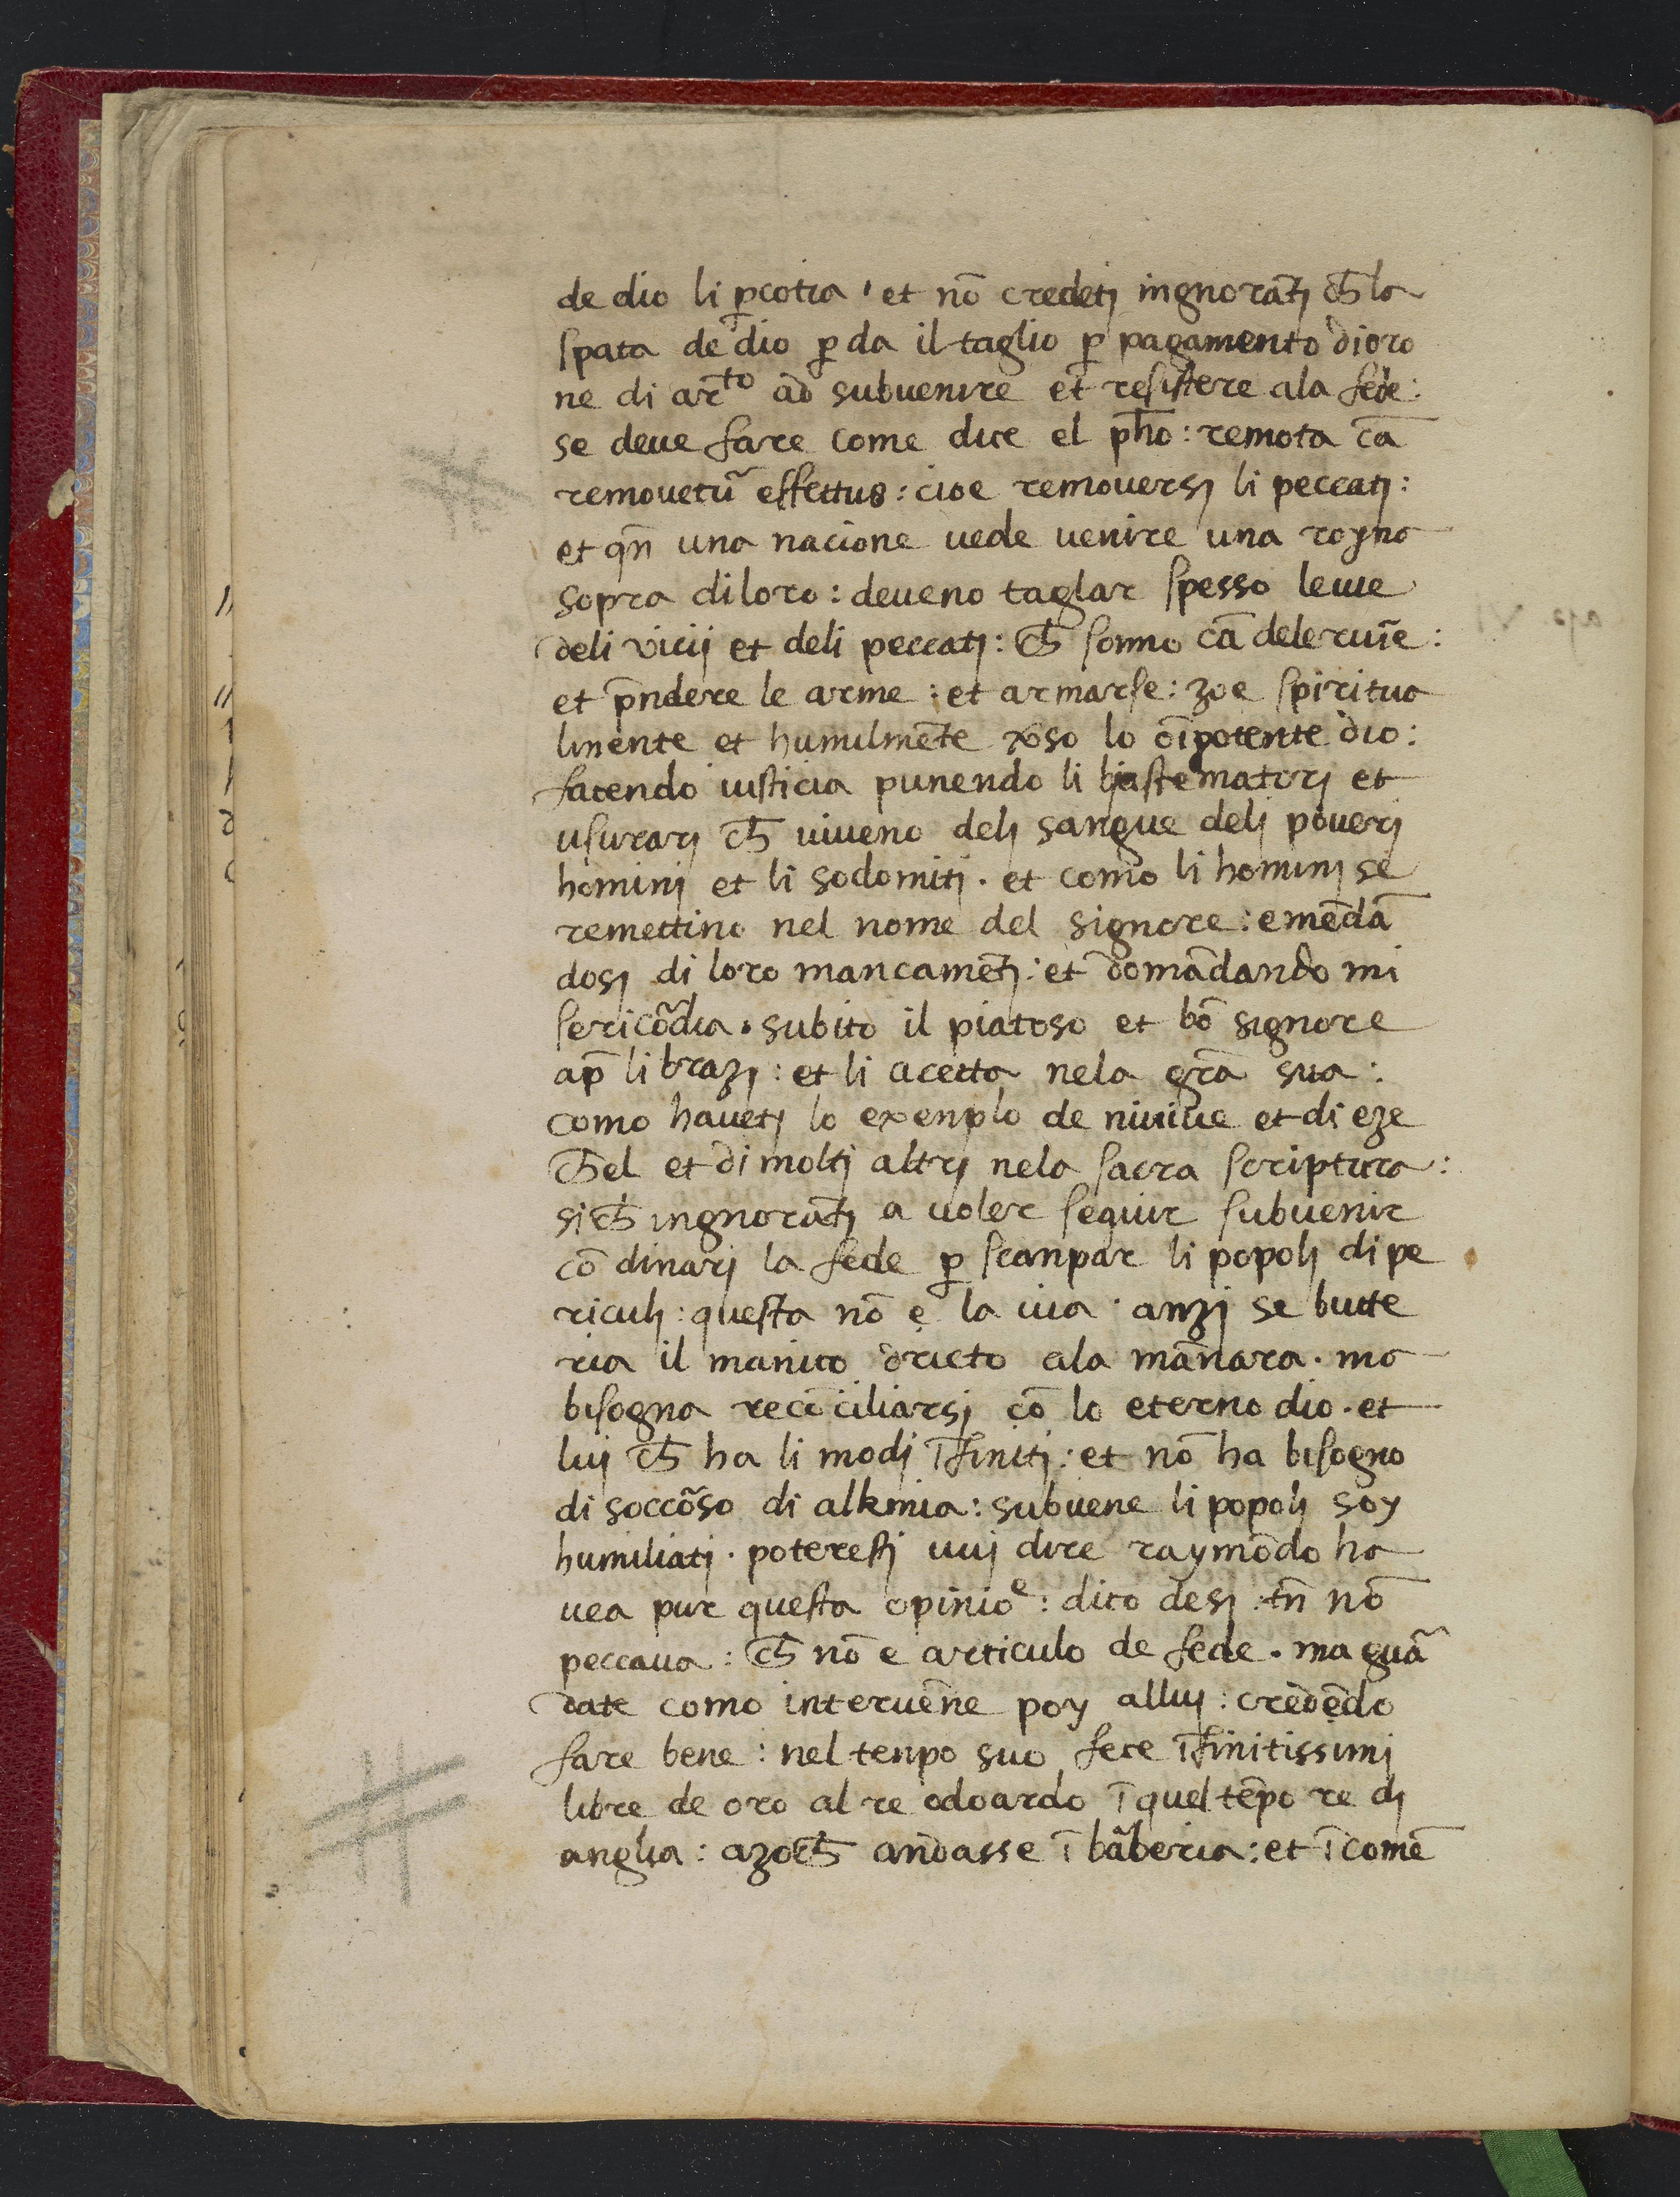 de dio li ꝑcotia et nō credetj ingnorātj ch̄ la
spata de dio ꝑda il taglio ꝑ pagamento di oro
ne di ar̄to ad subuenire et resistere ala fede:
se deue fare come dice el ph̄o: remota cā
remouetũ effettus: cioe remouersj li peccatj:
et qn̄ una nacione uede uenire una royna
sopra di loro: deueno taglar spesso le uie
deli vicij et deli peccatj: ch̄ sonno cā dele ruīe:
et p̄ndere le arme: et armarse: zoe spiritua
lmente et humilmēte ꝟso lo oīpotente dio:
facendo iusticia punendo li biastematorj et
usurarj ch̄ uiueno delj sangue delj pouerj
hominj et li sodomitj. et como li hominj se
remettino nel nome del signore: emēdā
dosj di loro mancamētj: et domādando mi
sericõdia. subito il piatoso et bō signore
ap̄ li brazj: et li acetta nela grā sua:
como hauetj lo exenplo de niniue et di eze
ch̄el et di moltj altrj nela sacra scriptura:
sich̄ ingnorātj a uoler seguir subuenir
cō dinarj la fede ꝑ scanpar li popolj di pe
riculj: questa nō e la uia anzj se butte
ria il manico dricto ala mānara. ma
bisogna recōciliarsj cō lo eterno dio. et
luj ch̄ ha li modj īfinitj: et nō ha bisogno
di soccõso di alkmia: subuene li popolj soy
humiliatj. poterestj uuj dire raymōdo ha
uea pur questa opinioe: dico desj: tn̄ nō
peccaua: ch̄ nō e articulo de fede. ma guã
date como interuēne poy alluj: credēdo
fare bene: nel tenpo suo fece īfinitissimj
libre de oro al re odoardo ī quel tēpo re dj
anglia: azoch̄ andasse ī bãberia: et ī comē